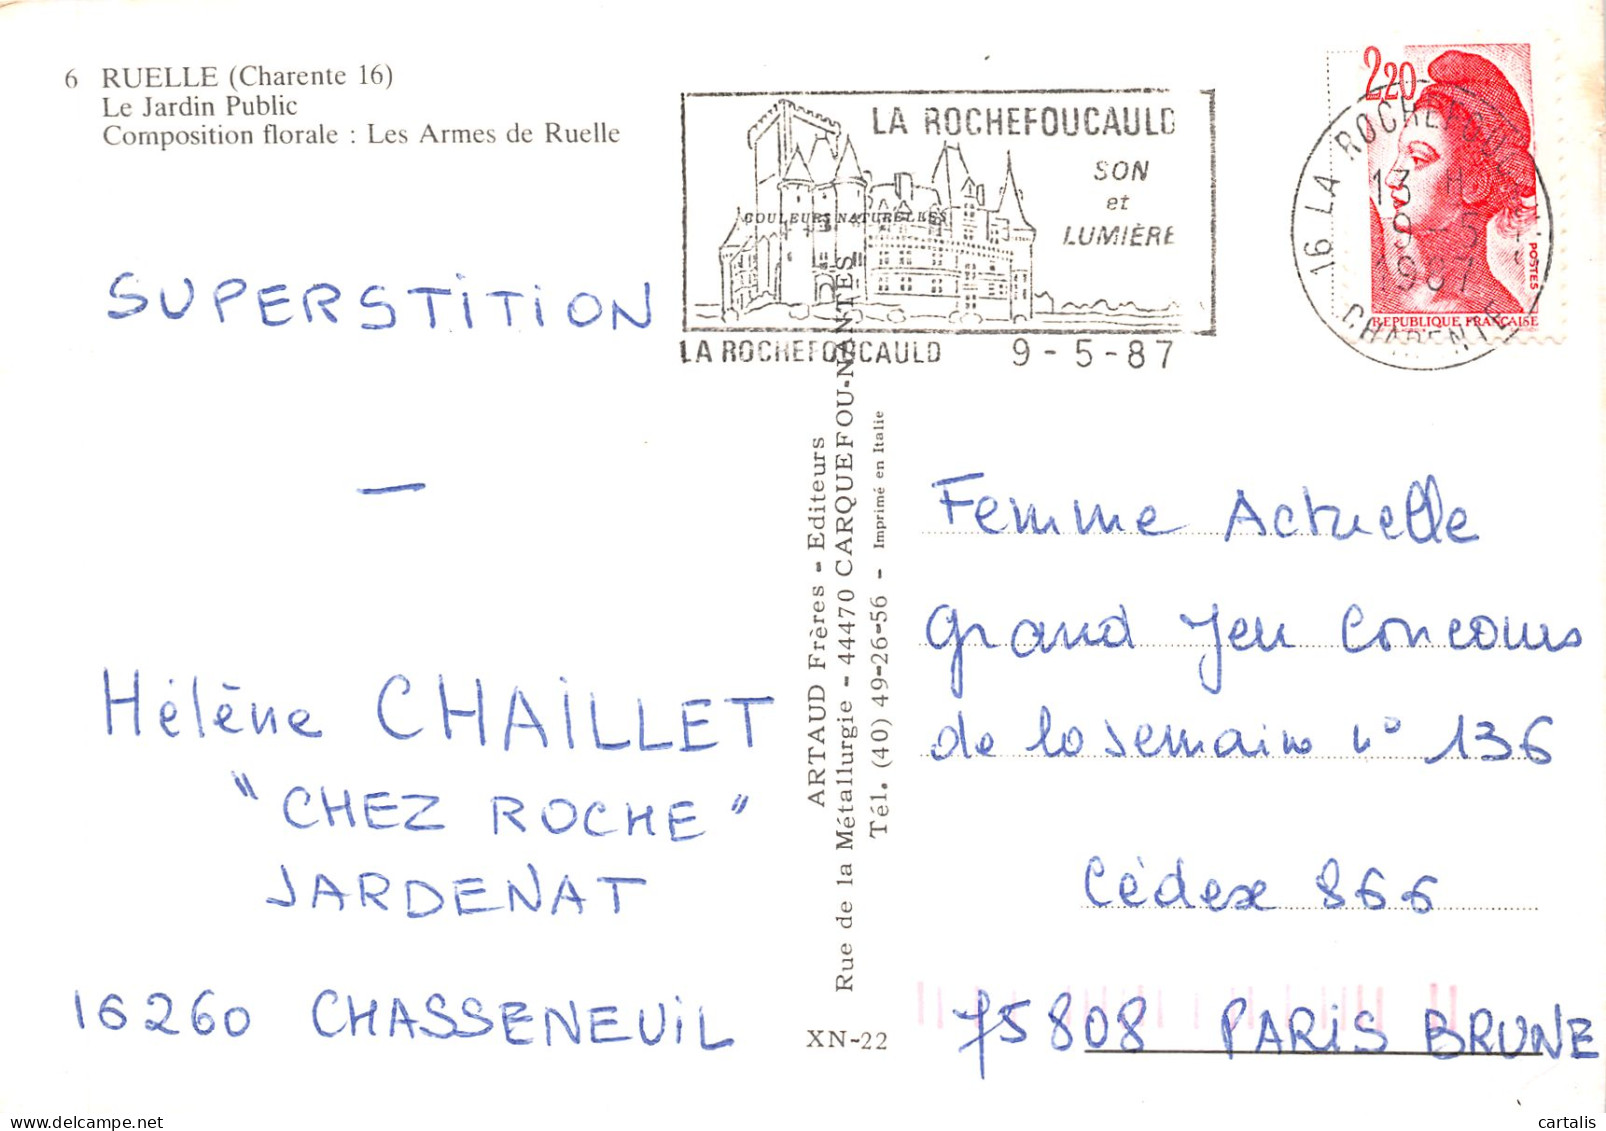 6 RUELLE (Charente 16)
Le Jardin Public
Composition florale : Les Armes de Ruelle
LA ROCHEFOUCAULD
SON
et
LUMIÈRE
COULEURS NATURELLES
LA ROCHEFOUCAULD 9-5-87
2,20
POSTES
REPUBLIQUE FRANÇAISE
16 LA ROCHEFOUCAULD
13 H
9-5
1987
CHARENTE
SUPERSTITION
—
Hélène CHAILLET
"CHEZ ROCHE"
JARDENAT
16260 CHASSENEUIL
ARTAUD Frères - Editeurs
Rue de la Métallurgie - 44470 CARQUEFOU-NANTES
Tél. (40) 49-26-56 - Imprimé en Italie
XN-22
Femme Actuelle
Grand Jeu Concours
de la semaine n° 136
Cédex 866
75808 PARIS BRUNE
cartalis